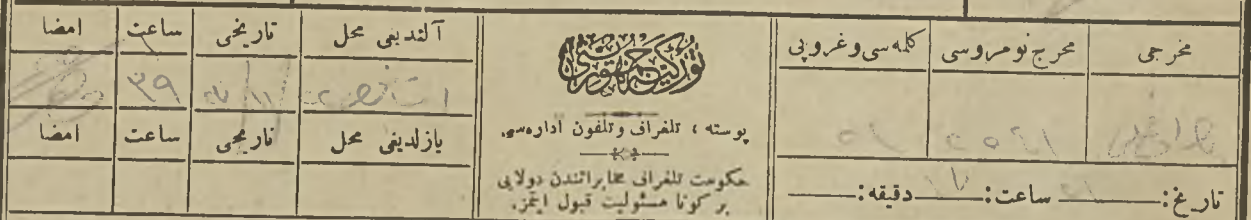 مخرجی
مخرج نومروسی
كلمه سی و غروپی
تاریخ: ساعت: دقیقه:
توركیه جمهوریتی
پوسته ، تلغراف وتلفون اداره سی
حكومت تلغرافی مخابراتندن دولایی
بر كونا مسئولیت قبول ایتمز.
آلندیغی محل
تاریخی
ساعت
امضا
٣٩
یازلدیغی محل
تاریخی
ساعت
امضا